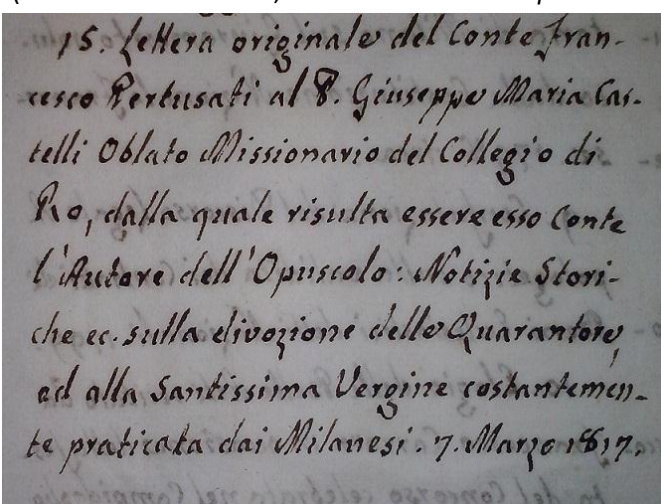 15. Lettera originale del Conte Fran-
cesco Pertusati al P. Giuseppe Maria Cas-
telli Oblato Missionario del Collegio di
Ro, dalla quale risulta essere esso Conte
l'Autore dell'Opuscolo: Notizie Stori-
che ec. sulla divozione delle Quarantore,
ed alla Santissima Vergine costantemen-
te praticata dai Milanesi. 7. Marzo 1817.